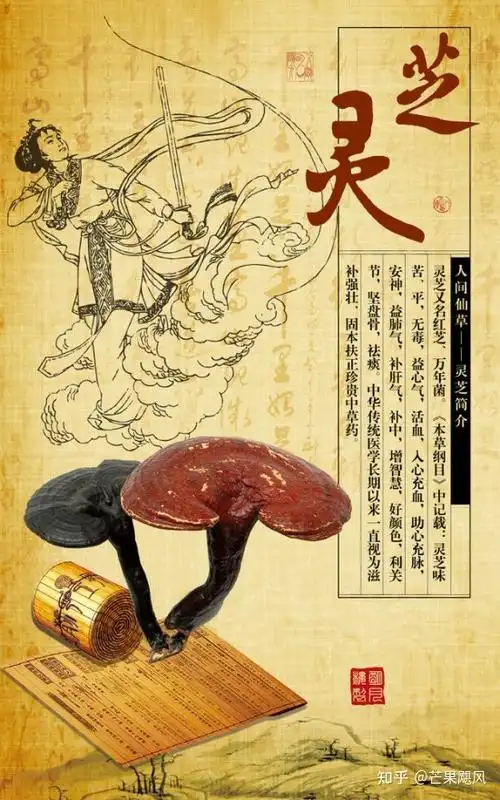 灵芝
人间仙草——灵芝简介
灵芝又名红芝、万年菌。《本草纲目》中记载：灵芝味
苦、平，无毒，益心气，活血，入心充血，助心充脉，
安神，益肺气，补肝气，补中，增智慧，好颜色，利关
节，坚盘骨，祛痰。中华传统医学长期以来一直视为滋
补强壮、固本扶正珍贵中草药。
知乎 @芒果飓风